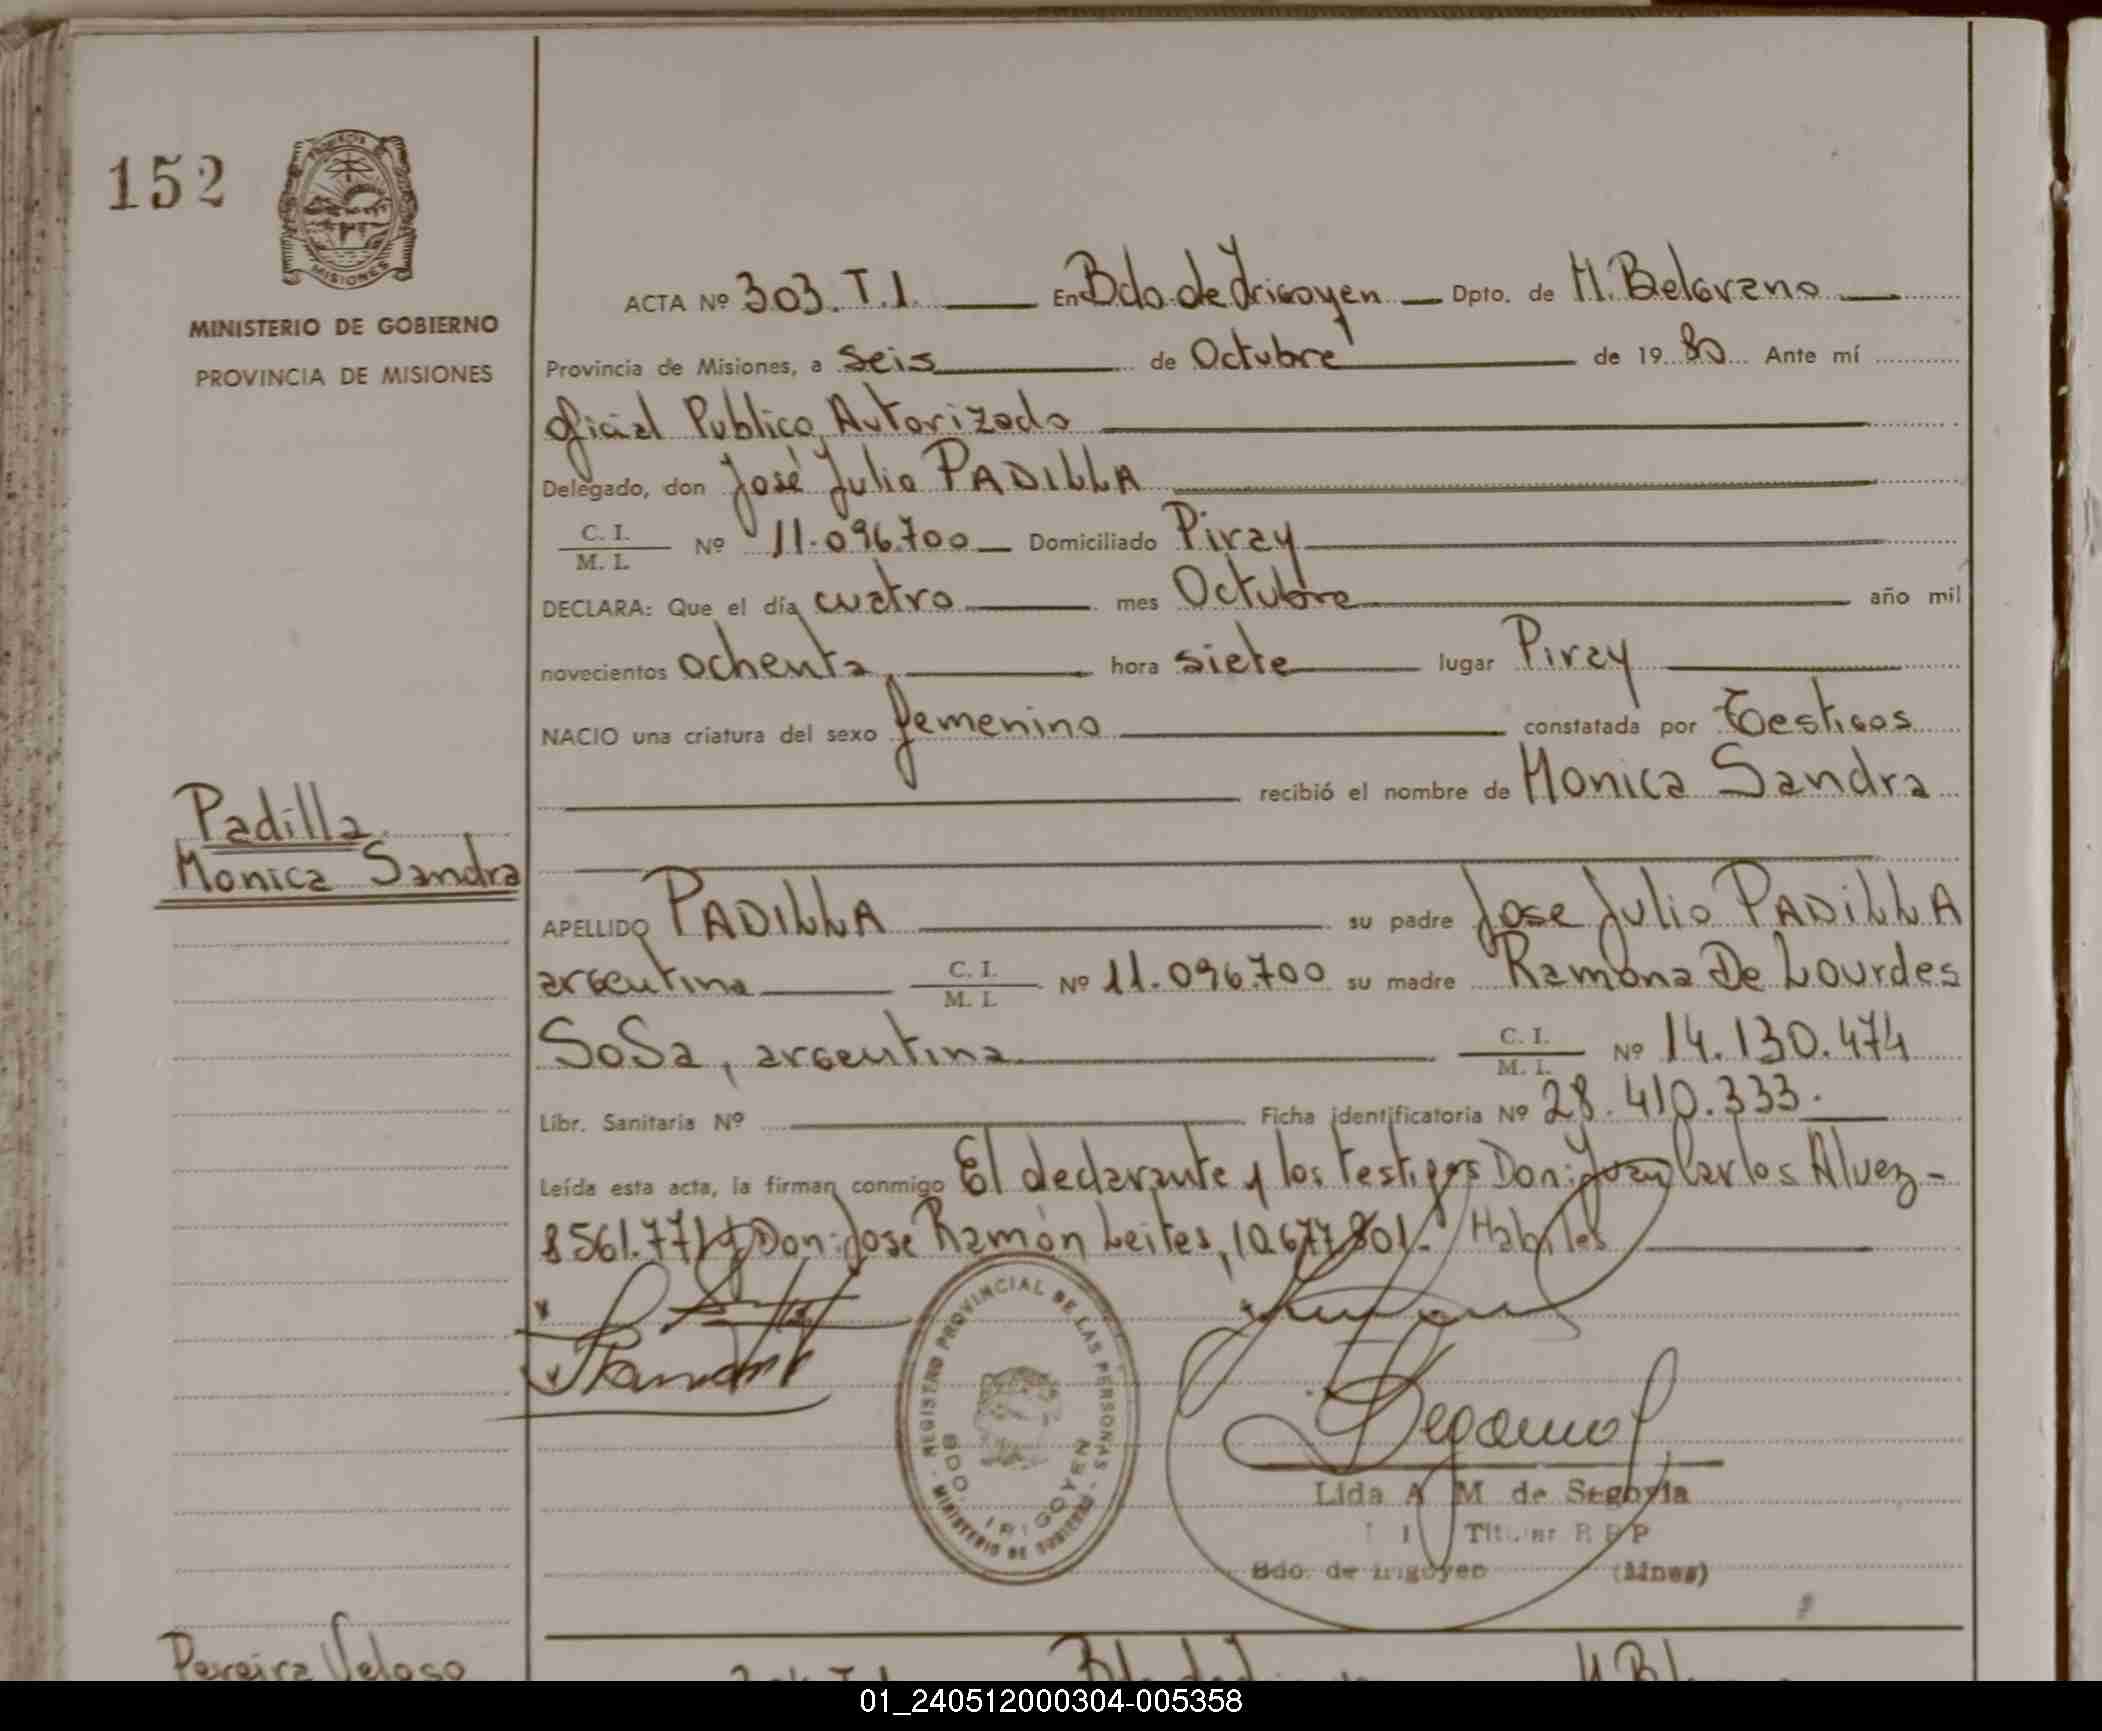 152
PROVINCIA
MISIONES
MINISTERIO DE GOBIERNO
PROVINCIA DE MISIONES
ACTA Nº 303. T.1. En Bdo. de Irigoyen Dpto. de M. Belgrano
Provincia de Misiones, a Seis de Octubre de 19 80 Ante mí
Oficial Publico Autorizado
Delegado, don José Julio PADILLA
C. I. / M. I. Nº 11.096.700 Domiciliado Piray
DECLARA: Que el día cuatro mes Octubre año mil
novecientos ochenta, hora siete lugar Piray
NACIO una criatura del sexo femenino constatada por Testigos
recibió el nombre de Monica Sandra
Padilla
Monica Sandra
APELLIDO PADILLA su padre Jose Julio PADILLA
argentina C. I. / M. I. Nº 11.096.700 su madre Ramona De Lourdes
SoSa, argentina C. I. / M. I. Nº 14.130.474
Libr. Sanitaria Nº Ficha identificatoria Nº 28.410.333.
Leída esta acta, la firman conmigo El declarante y los testigos Don: Juan Carlos Alvez-
8561.771 y Don: Jose Ramón Leites, 10.677.801.- Habiles
REGISTRO PROVINCIAL DE LAS PERSONAS - MINISTERIO DE GOBIERNO -
BDO. IRIGOYEN
Lida A M de Segovia
Titular R P P
Bdo. de Irigoyen (Mnes)
Pereira Veloso
01_240512000304-005358